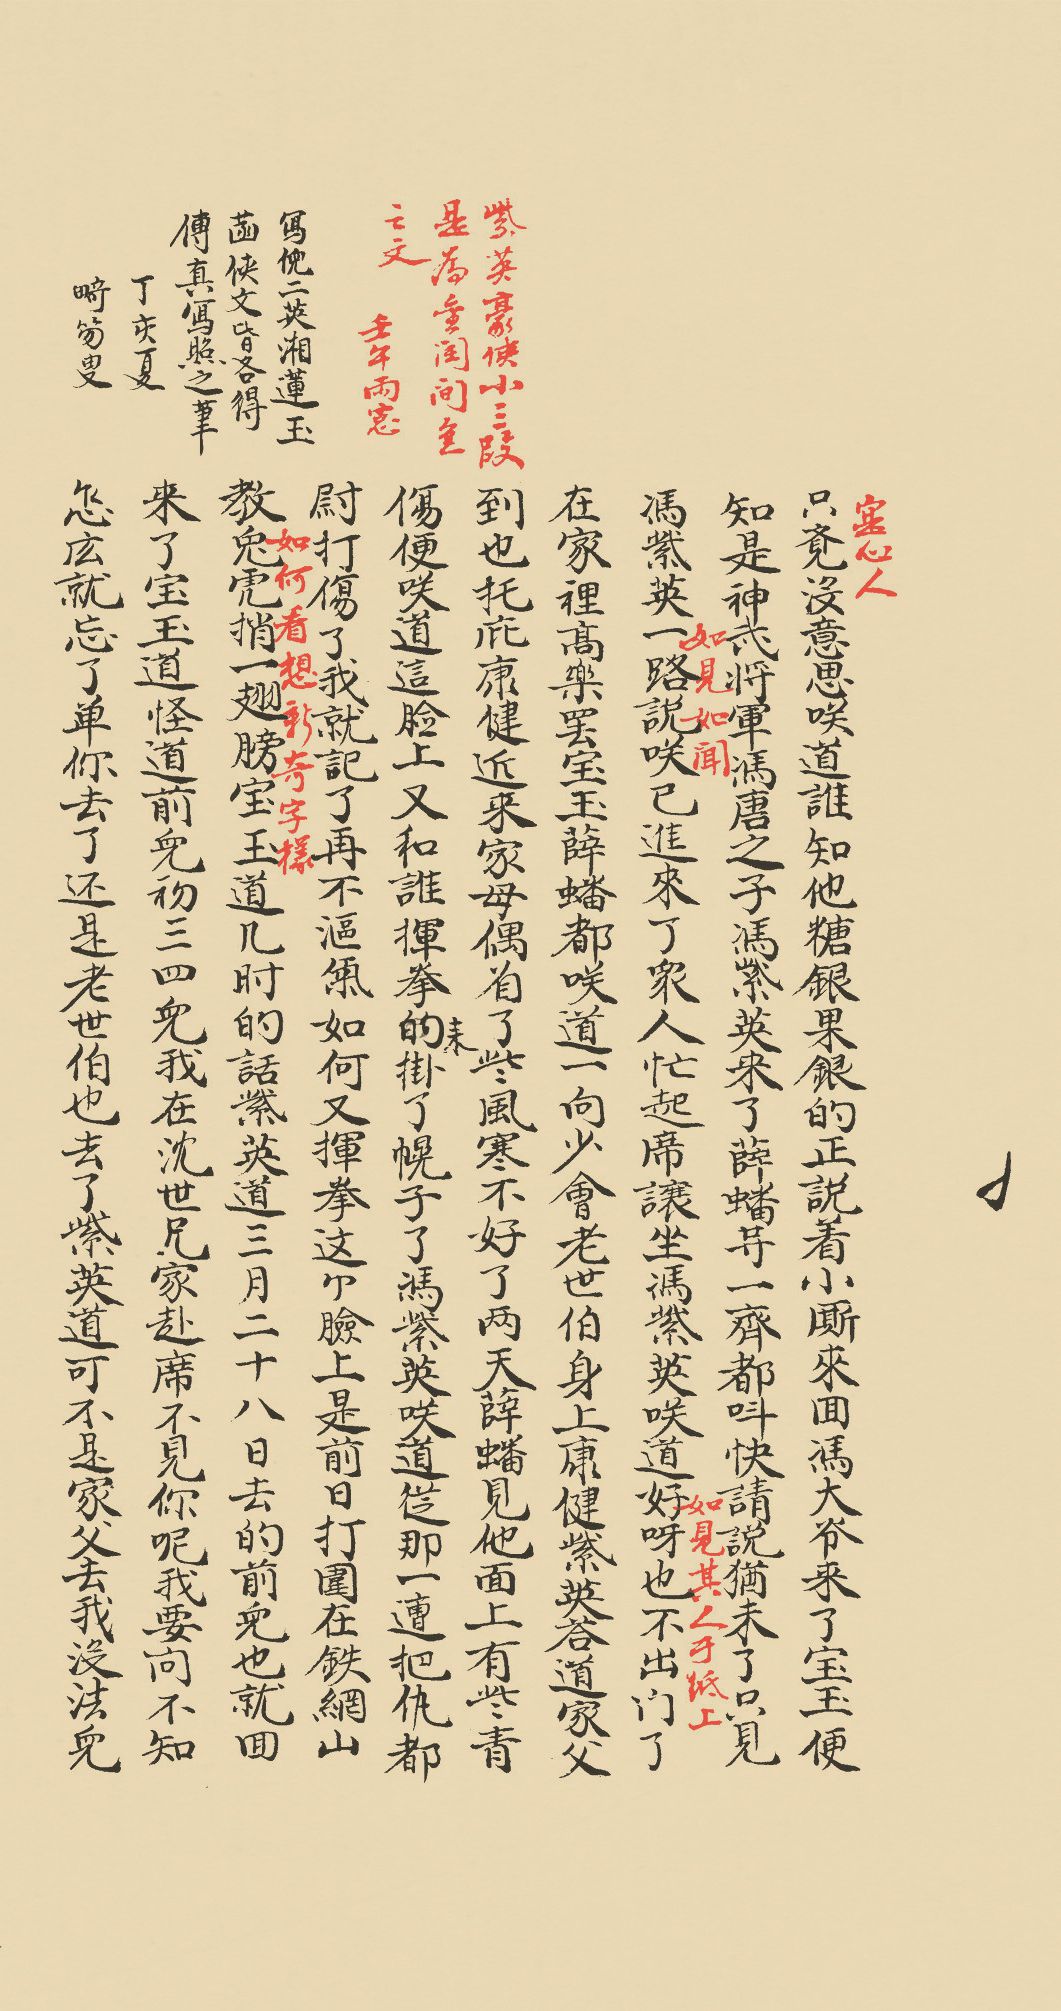 實心人
只覔沒意思咲道誰知他糖銀果銀的正説着小厮來囬馮大爷来了宝玉便
知是神武将軍馮唐之子馮紫英来了薛蟠䒭一齊都呌快請説猶未了只見
如見如聞
馮紫英一路説咲已進來了衆人忙起席讓坐馮紫英咲道好呀也不出门了
如見其人于紙上
在家裡髙樂罢宝玉薛蟠都咲道一向少會老世伯身上康健紫英荅道家父
到也托庇康健近来家母偶着了些風寒不好了两天薛蟠見他面上有些青
傷便咲道這脸上又和誰揮拳的来掛了幌子了馮紫英咲道従那一遭把仇都
尉打傷了我就記了再不漚氣如何又揮拳这个臉上是前日打圍在鉄網山
教兔鶻捎一翅膀宝玉道几时的話紫英道三月二十八日去的前児也就囬
如何看想新奇字樣
来了宝玉道怪道前児初三四児我在沈世兄家赴席不見你呢我要问不知
怎庅就忘了单你去了还是老世伯也去了紫英道可不是家父去我沒法児
紫英豪俠小三段
是為金閨间色
之文
壬午雨窓
冩倪二英湘蓮玉
菡俠文皆各得
傳真冩照之筆
丁亥夏
畸笏叟